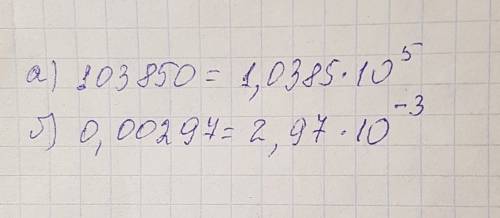 а) 103850 = 1,0385·10⁵
б) 0,00297 = 2,97·10⁻³